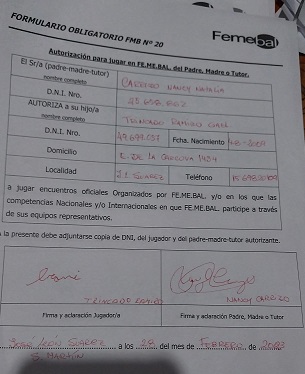 FORMULARIO OBLIGATORIO FMB Nº 20
Femebal
Autorización para jugar en FE.ME.BAL. del Padre, Madre o Tutor.
El Sr/a (padre-madre-tutor)
nombre completo
CARRIZO NANCY NATALIA
D.N.I. Nro.
AUTORIZA a su hijo/a
nombre completo
TRINCADO RAMIRO
D.N.I. Nro.
Fcha. Nacimiento
Domicilio
Localidad
J.L SUAREZ
Teléfono
a jugar encuentros oficiales Organizados por FE.ME.BAL. y/o en los que las
competencias Nacionales y/o Internacionales en que FE.ME.BAL. participe a través
de sus equipos representativos.
la presente debe adjuntarse copia de DNI, del jugador y del padre-madre-tutor autorizante.
TRINCADO RAMIRO
NANCY CARRIZO
Firma y aclaración Jugador/a
Firma y aclaración Padre, Madre o Tutor
SUAREZ a los 28 del mes de FEBRERO de
S. MARTIN